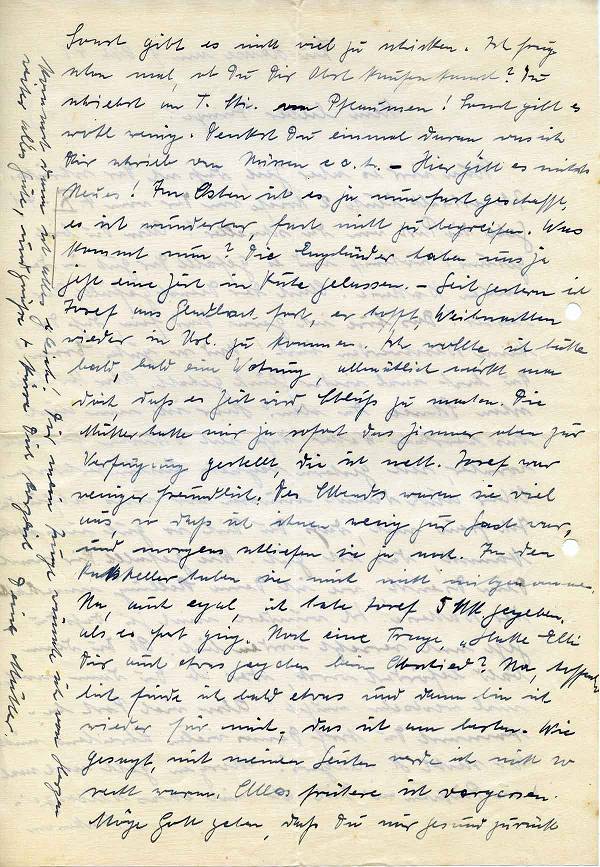 Sonst gibt es nicht viel zu schicken. Ich frug
schon mal, ob Du Dir Obst kaufen kannst? Du
schriebst im T. Sti. von Pflaumen! Sonst gibt es
wohl wenig. Denkst Du einmal daran was ich
Dir schrieb von Nüssen e.c.t. – Hier gibt es nichts
Neues! Im Osten ist es ja nun fast geschafft,
es ist wunderbar, fast nicht zu begreifen. Was
kommt nun? Die Engländer haben uns ja
jetzt eine Zeit in Ruhe gelassen. – Seit gestern ist
Josef aus fort, er hofft, Weihnachten
wieder in Url. zu kommen. Ich wollte, ich hätte
bald, bald eine Wohnung, allmählich merkt man
doch, daß es Zeit wird, Schluß zu machen. Die
Mutter hatte mir ja sofort das Zimmer oben zur
Verfügung gestellt, die ist nett. Josef war
weniger freundlich. Des Abends waren sie viel
aus, so daß ich ihnen wenig zur Last war,
und morgens schliefen sie ja noch. In den
Ratskeller haben sie mich nicht mitgenommen.
Na, auch egal, ich habe Josef 5 MK gegeben,
als er fort ging. Noch eine Frage, „Hatte Elli
Dir auch etwas gegeben beim Abschied? Na, hoffent-
lich finde ich bald etwas und dann bin ich
wieder für mich, das ist am besten. Wie
gesagt, mit meinen Leuten werde ich nicht so
recht warm. Alles frühere ist vergessen.
Möge Gott geben, daß Du nur gesund zurück
kommst, dann ist alles gleich! Dir mein Junge wünsche ich von Herzen
weiter alles Gute, und grüße + küsse Dich herzlich Deine Mutter